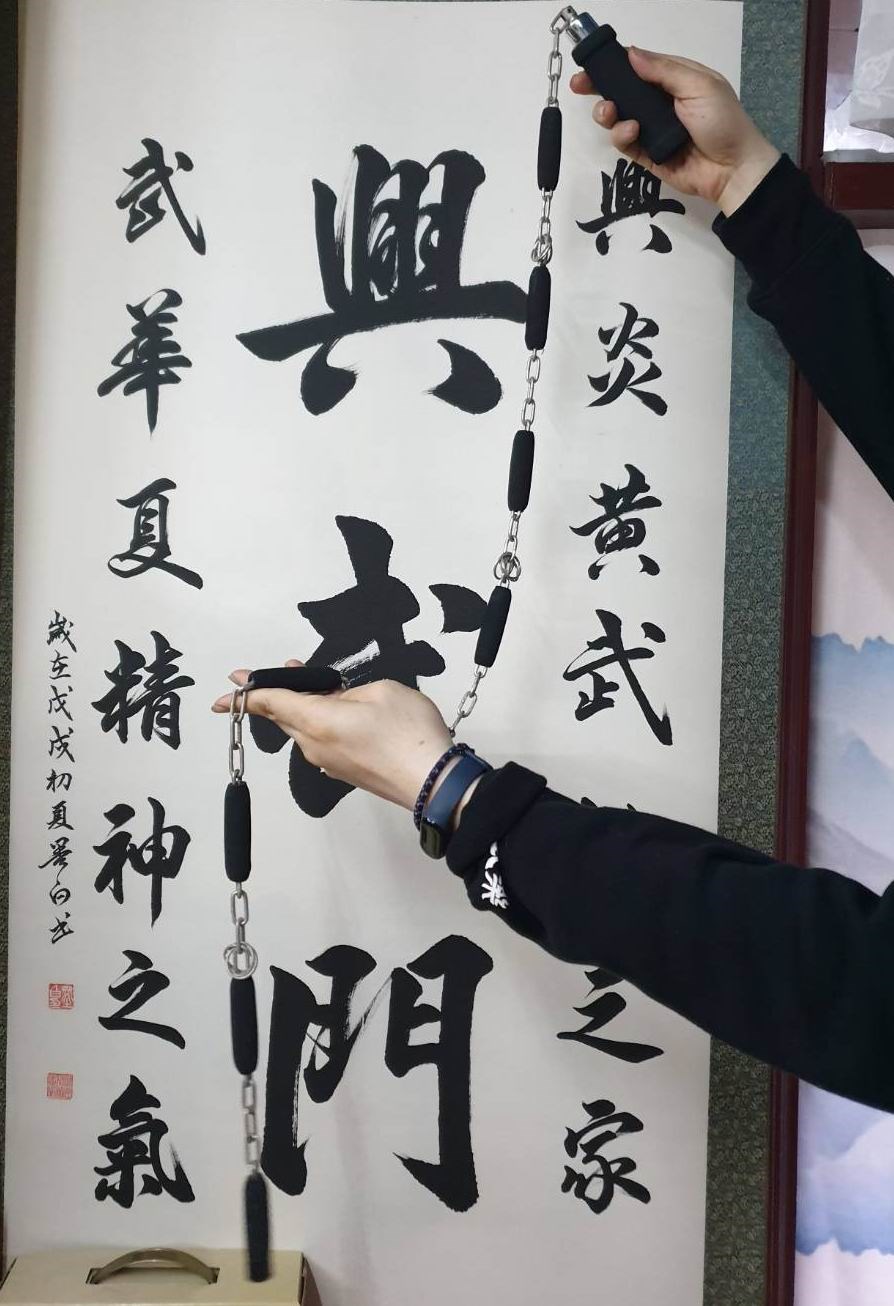 興炎黄武之家
興武門
武華夏精神之氣
歲在戊戌初夏白书